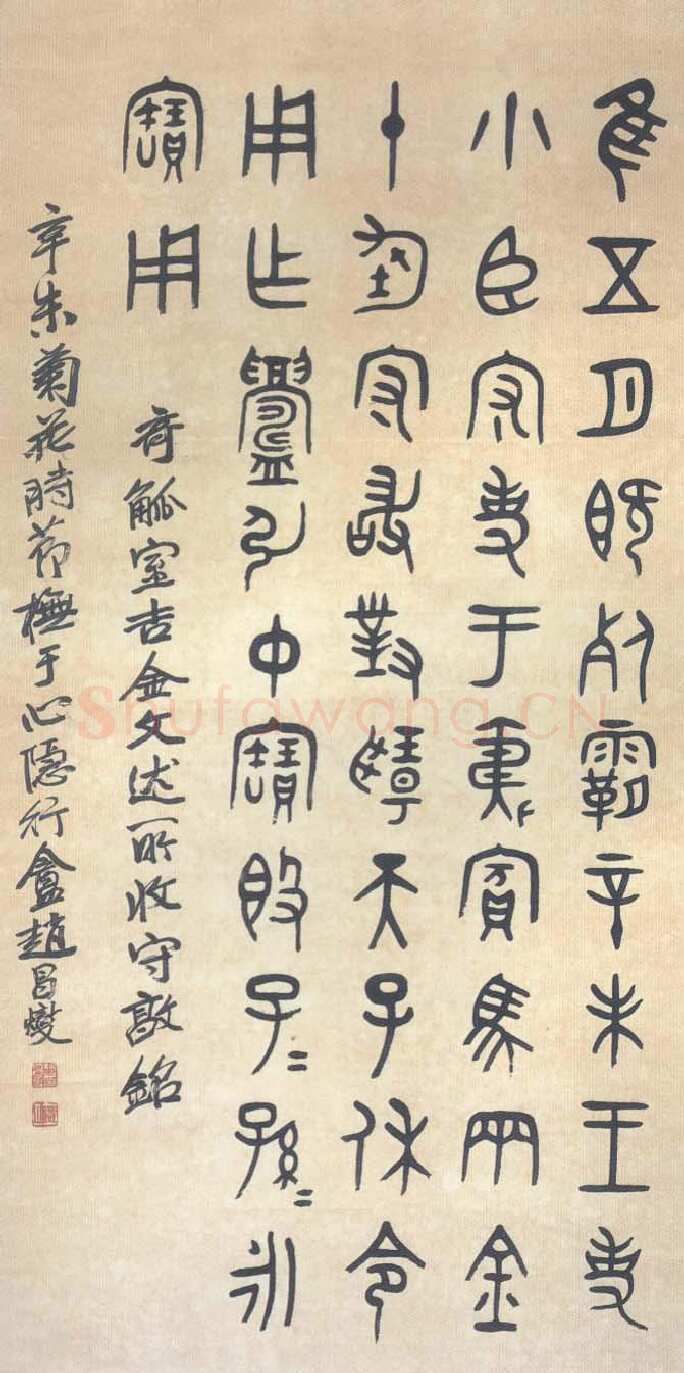 隹五月既死霸辛未王事
小臣守事于夷〻賓馬兩金
十鈞守敢對揚天子休令
用乍鑄引中寶𣪘子〻孫〻永
寶用
奇觚室吉金文述所收守敦銘
辛未菊花時節橅于心隱行盦趙昌燮
Shufawang.CN